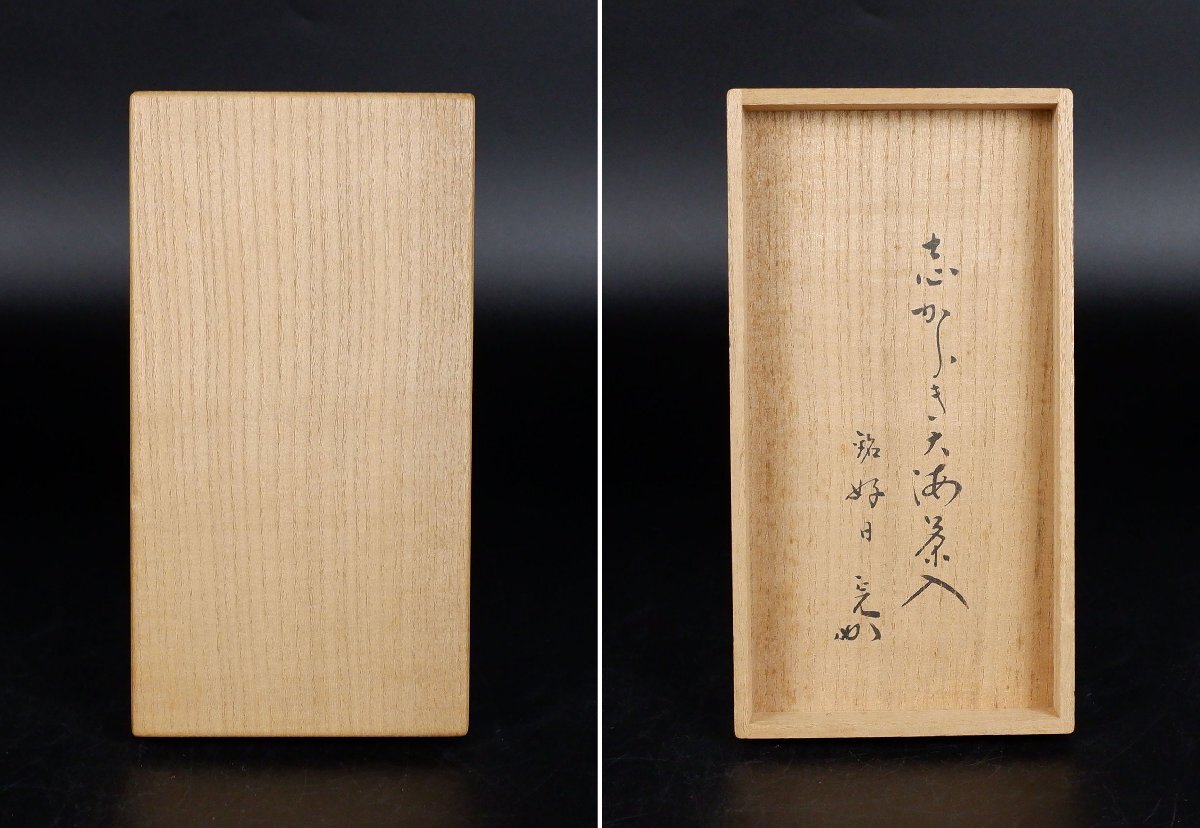 志からき大海茶入
銘 好日